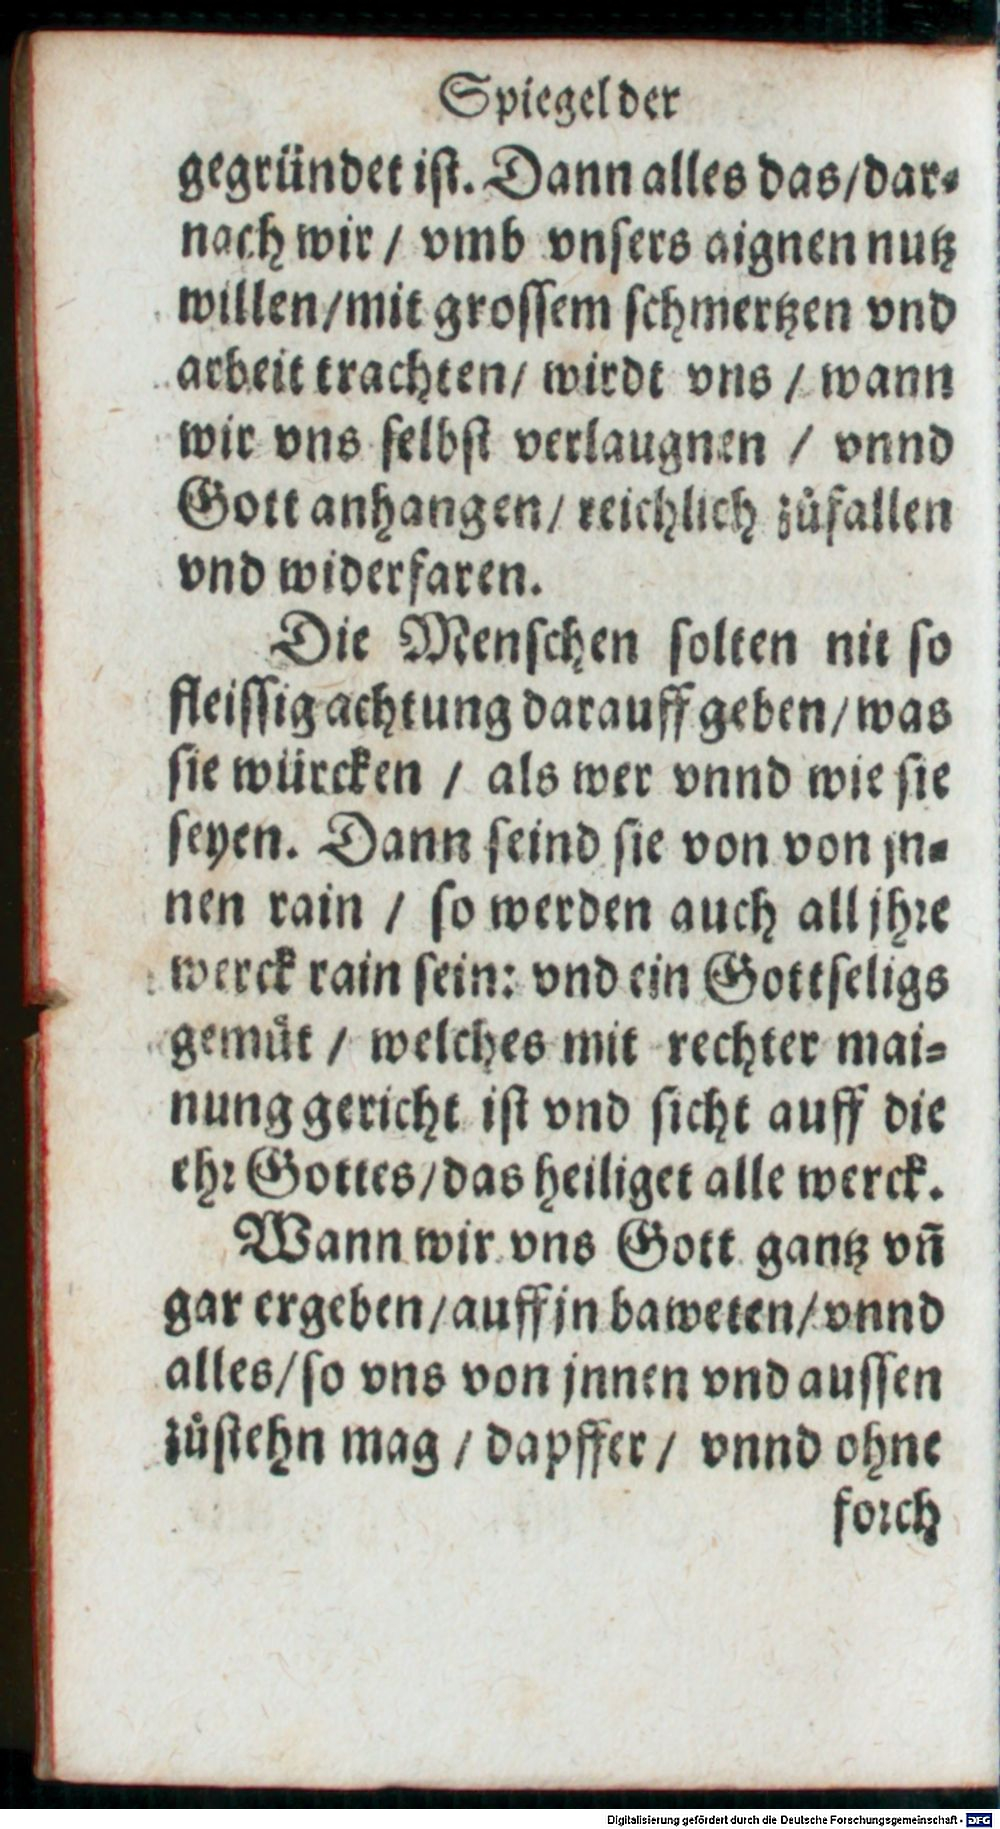 Spiegel der
gegründet ist. Dann alles das/dar-
nach wir / vmb vnsers aignen nutz
willen/mit grossem schmertzen vnd
arbeit trachten/ wirdt vns / wann
wir vns selbst verlaugnen / vnnd
Gott anhangen/ reichlich zůfallen
vnd widerfaren.
Die Menschen solten nit so
fleissig achtung darauff geben/was
sie würcken / als wer vnnd wie sie
seyen. Dann seind sie von von jn-
nen rain / so werden auch all jhre
werck rain sein: vnd ein Gottseligs
gemůt / welches mit rechter mai-
nung gericht ist vnd sicht auff die
ehr Gottes/das heiliget alle werck.
Wann wir vns Gott gantz vñ
gar ergeben/auff jn baweten/vnnd
alles/so vns von jnnen vnd aussen
zůstehn mag / dapffer / vnnd ohne
forch
Digitalisierung gefördert durch die Deutsche Forschungsgemeinschaft - DFG